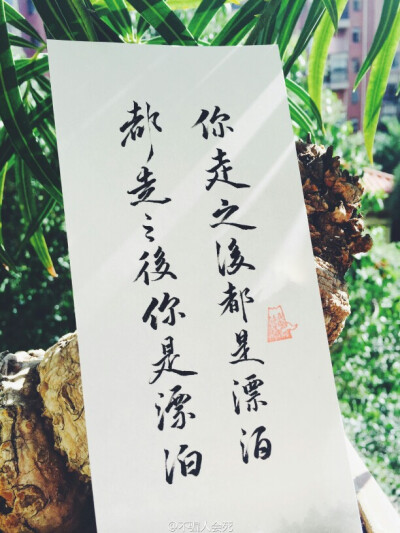 你走之後都是漂泊
都走之後你是漂泊
@不骗人会死